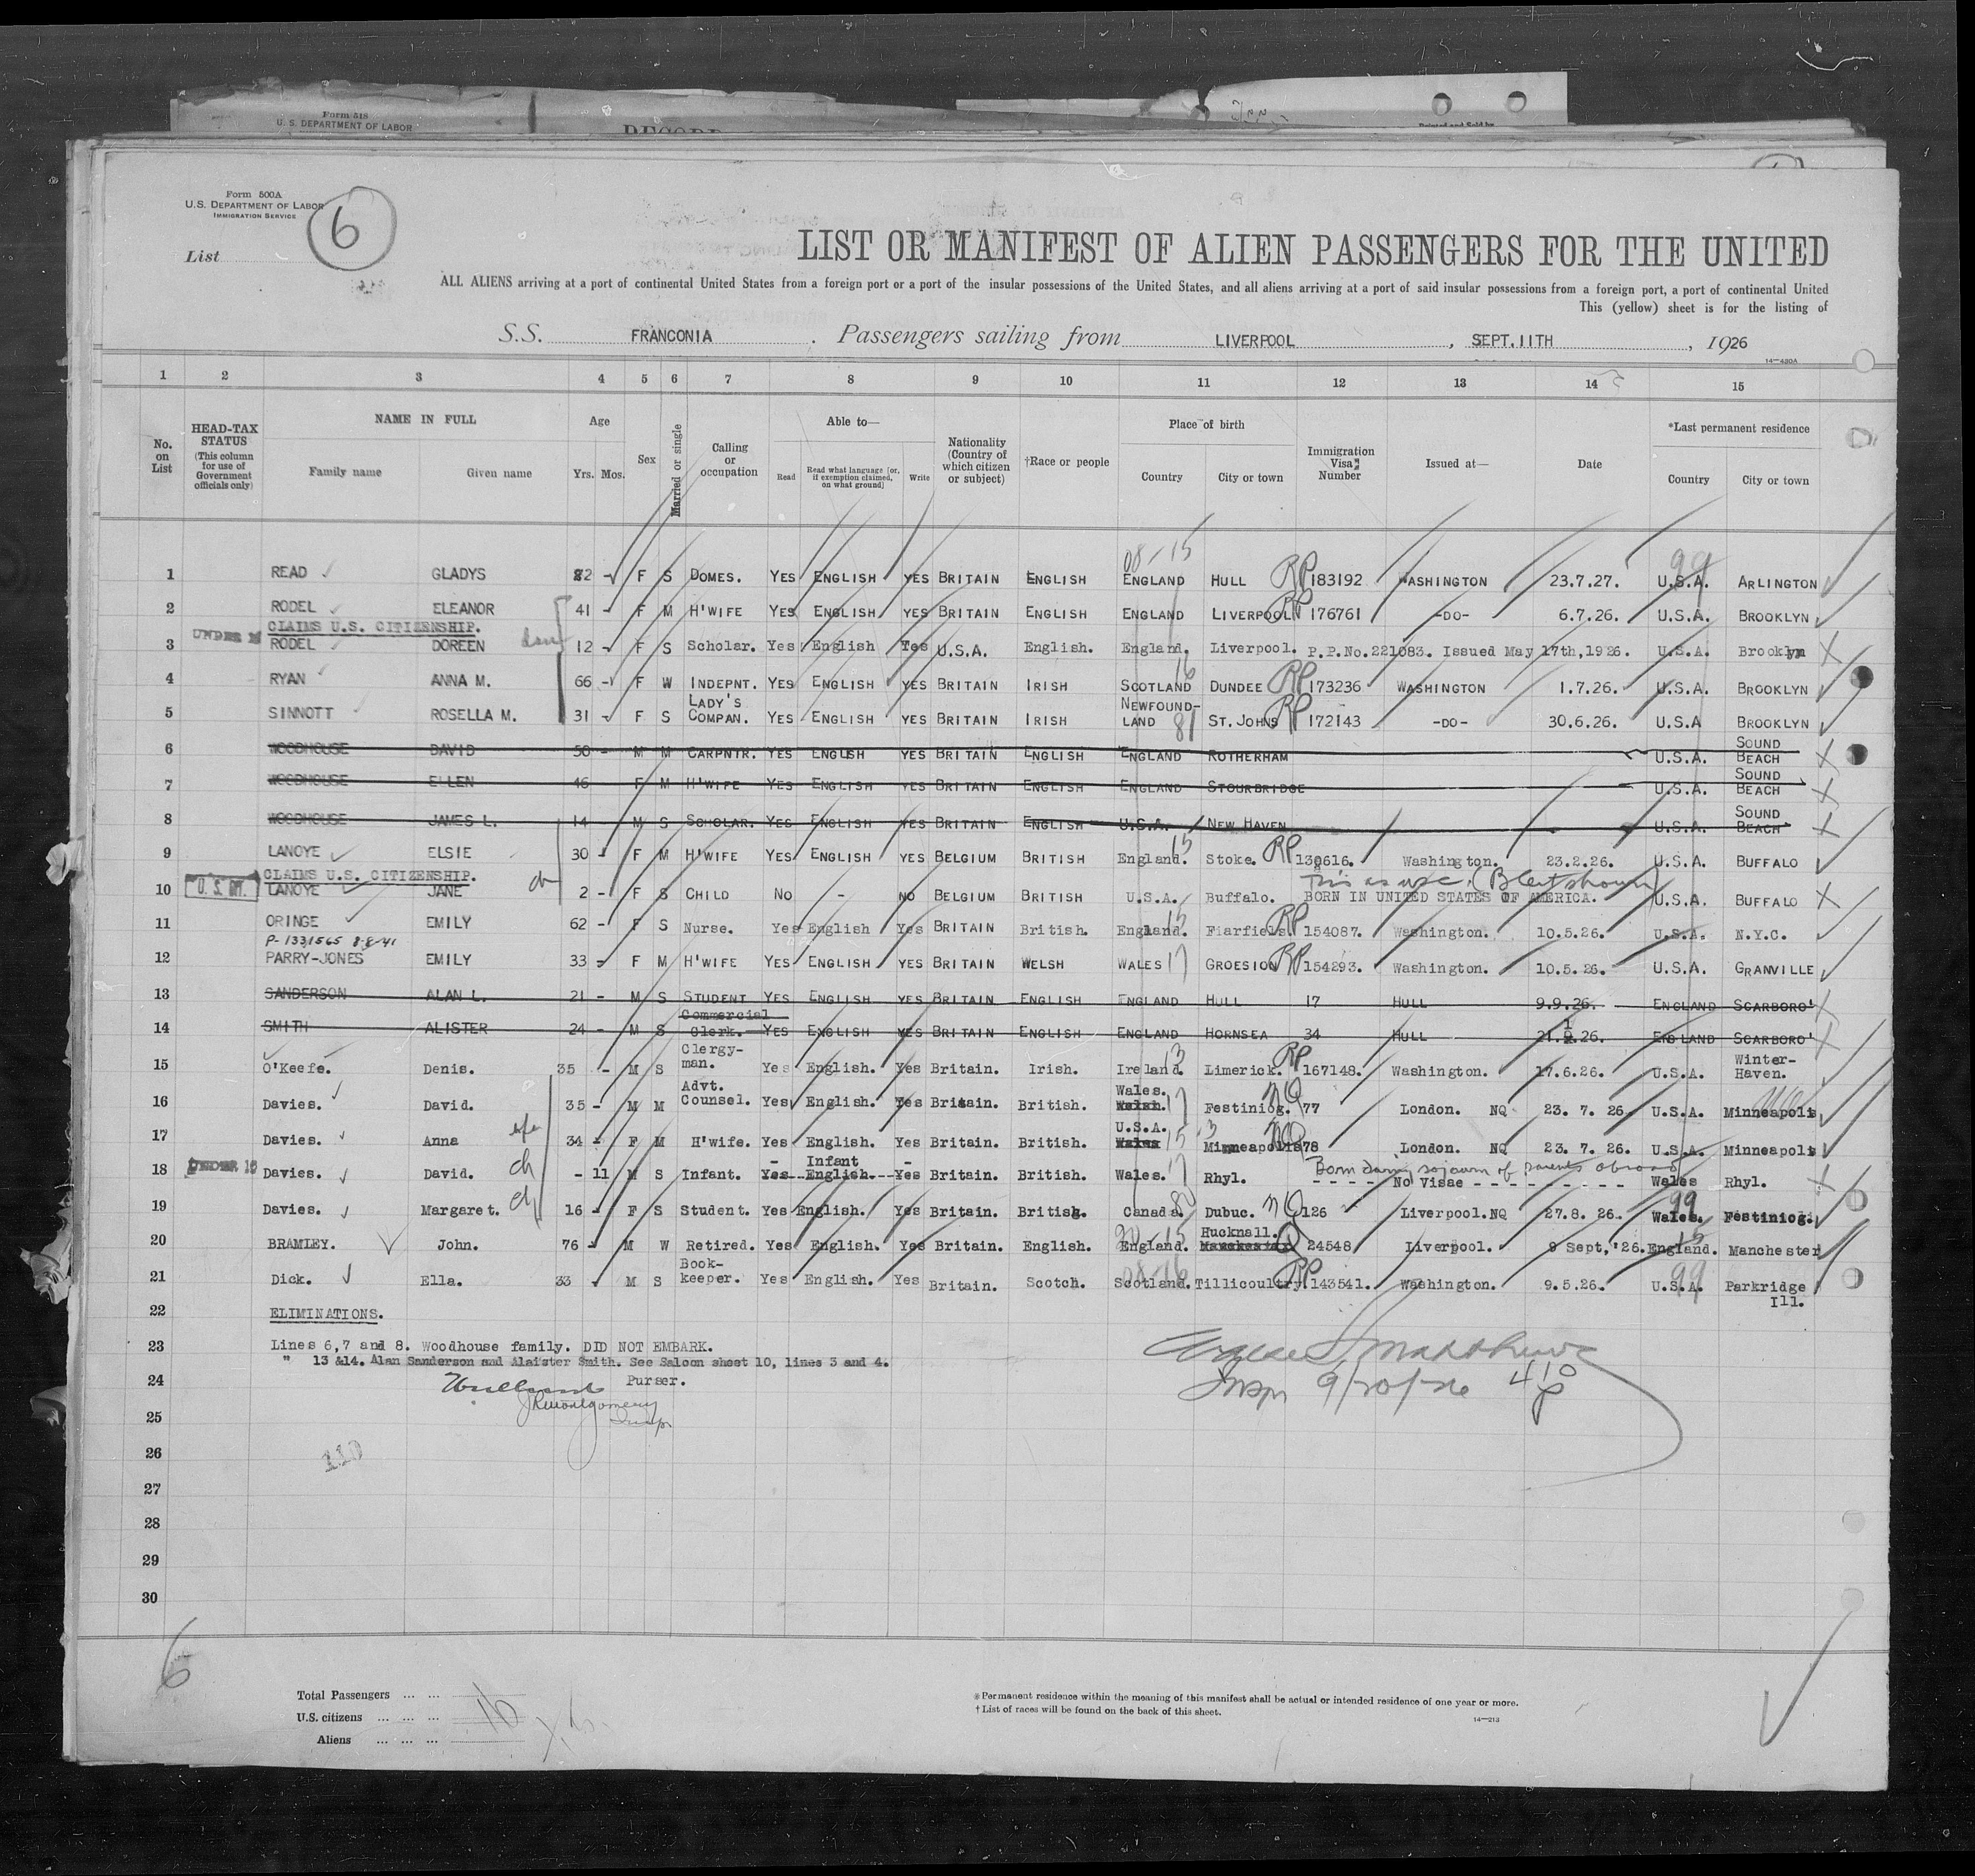 Form 518
U. S. DEPARTMENT OF LABOR
RECORD
Printed and Sold by
Form 500A
U.S. DEPARTMENT OF LABOR
IMMIGRATION SERVICE
6
List
LIST OR MANIFEST OF ALIEN PASSENGERS FOR THE UNITED
ALL ALIENS arriving at a port of continental United States from a foreign port or a port of the insular possessions of the United States, and all aliens arriving at a port of said insular possessions from a foreign port, a port of continental United
This (yellow) sheet is for the listing of
S.S. FRANCONIA. Passengers sailing from LIVERPOOL, SEPT. 11TH, 1926
14—420A
1 2 3 4 5 6 7 8 9 10 11 12 13 14 15
No. on List
HEAD-TAX STATUS (This column for use of Government officials only)
NAME IN FULL Family name Given name
Age Yrs. Mos.
Sex
Married or single
Calling or occupation
Able to— Read Read what language [or, if exemption claimed, on what ground] Write
Nationality (Country of which citizen or subject)
†Race or people
Place of birth Country City or town
Immigration Visa Number
Issued at—
Date
*Last permanent residence Country City or town
08-15 99
1 READ GLADYS 22 - F S DOMES. YES ENGLISH YES BRITAIN ENGLISH ENGLAND HULL RP 183192 WASHINGTON 23.7.27. U.S.A. ARLINGTON
2 RODEL ELEANOR 41 - F M H'WIFE YES ENGLISH YES BRITAIN ENGLISH ENGLAND LIVERPOOL RP 176761 -DO- 6.7.26. U.S.A. BROOKLYN
CLAIMS U.S. CITIZENSHIP.
3 UNDER 16 RODEL DOREEN 12 - F S Scholar. Yes English Yes U.S.A. English. England. Liverpool. P.P.No.221083. Issued May 17th,1926. U.S.A. Brooklyn
4 RYAN ANNA M. 66 - F W INDEPNT. YES ENGLISH YES BRITAIN IRISH SCOTLAND 16 DUNDEE RP 173236 WASHINGTON 1.7.26. U.S.A. BROOKLYN
5 SINNOTT ROSELLA M. 31 - F S LADY'S COMPAN. YES ENGLISH YES BRITAIN IRISH NEWFOUND-LAND 81 ST. JOHNS RP 172143 -DO- 30.6.26. U.S.A BROOKLYN
6 WOODHOUSE DAVID 50 - M M CARPNTR. YES ENGLISH YES BRITAIN ENGLISH ENGLAND ROTHERHAM U.S.A. SOUND BEACH
7 WOODHOUSE ELLEN 46 F M H'WIFE YES ENGLISH YES BRITAIN ENGLISH ENGLAND STOURBRIDGE U.S.A. SOUND BEACH
8 WOODHOUSE JAMES L. 14 M S SCHOLAR. YES ENGLISH YES BRITAIN ENGLISH U.S.A. NEW HAVEN U.S.A. SOUND BEACH
9 LANOYE ELSIE 30 - F M H'WIFE YES ENGLISH YES BELGIUM BRITISH England. 15 Stoke. RP 130616. Washington. 23.2.26. U.S.A. BUFFALO
CLAIMS U.S. CITIZENSHIP.
10 LANOYE JANE ch 2 - F S CHILD NO - NO BELGIUM BRITISH U.S.A. Buffalo. BORN IN UNITED STATES OF AMERICA. U.S.A. BUFFALO
11 ORINGE EMILY 62 - F S Nurse. Yes English Yes BRITAIN British. England. 15 Fiarfield. RP 154087. Washington. 10.5.26. U.S.A. N.Y.C.
P-1331565 8-8-41
12 PARRY-JONES EMILY 33 - F M H'WIFE YES ENGLISH YES BRITAIN WELSH WALES 17 GROESION RP 154293. Washington. 10.5.26. U.S.A. GRANVILLE
13 SANDERSON ALAN L. 21 - M S STUDENT YES ENGLISH YES BRITAIN ENGLISH ENGLAND HULL 17 HULL 9.9.26. ENGLAND SCARBORO'
14 SMITH ALISTER 24 - M S Commercial Clerk. YES ENGLISH YES BRITAIN ENGLISH ENGLAND HORNSEA 34 HULL 21.9.26. ENGLAND SCARBORO'
15 O'Keefe. Denis. 35 - M S Clergy-man. Yes English. Yes Britain. Irish. Ireland. 13 Limerick. RP 167148. Washington. 17.6.26. U.S.A. Winter-Haven.
16 Davies. David. 35 - M M Advt. Counsel. Yes English. Yes Britain. British. Wales. Welsh. 17 Festiniog. NQ 77 London. NQ 23. 7. 26. U.S.A. Minneapolis
17 Davies. Anna 34 - F M H'wife. Yes English. Yes Britain. British. U.S.A. Wales Minneapolis NQ 78 London. NQ 23. 7. 26. U.S.A. Minneapolis
Born during sojourn of parents abroad
18 UNDER 16 Davies. David. ch - 11 M S Infant. Yes - English Infant - Yes Britain. British. Wales. 17 Rhyl. No Visae Wales Rhyl.
19 Davies. Margaret. ch 16 - F S Student. Yes English. Yes Britain. British. Canada. 80 Dubuc. NQ 126 Liverpool.NQ 27.8. 26. 99 Wales. Festiniog.
20 BRAMLEY. John. 76 - M W Retired. Yes English. Yes Britain. English. England. Hucknall. Q 24548 Liverpool. 9 Sept,'26. England. 15 Manchester
21 Dick. Ella. 33 - M S Book-keeper. Yes English. Yes Britain. Scotch. Scotland. 08-16 Tillicoultry. RP 143541. Washington. 9.5.26. U.S.A. 99 Parkridge Ill.
22 ELIMINATIONS.
23 Lines 6,7 and 8. Woodhouse family. DID NOT EMBARK.
" 13 &14. Alan Sanderson and Alaister Smith. See Saloon sheet 10, lines 3 and 4.
24 Purser.
Inspr 9/20/26
JRMontgomery
25 Inspr
26 110
27
28
29
30
6
Total Passengers ... ...
U.S. citizens ... ... ... 16
Aliens ... ... ...
*Permanent residence within the meaning of this manifest shall be actual or intended residence of one year or more.
†List of races will be found on the back of this sheet.
14—213